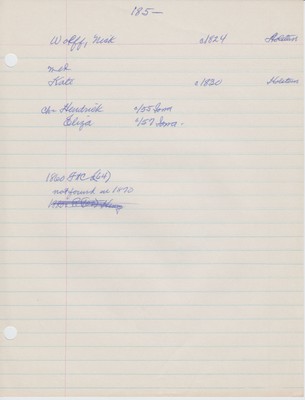 185—
Wolff, Nick c1824 Holstein
mch
Kate c1830 Holstein
Ch- Hendrick c/55 Iowa
Eliza c/57 Iowa -
1860 (F&C 264)
not found in 1870